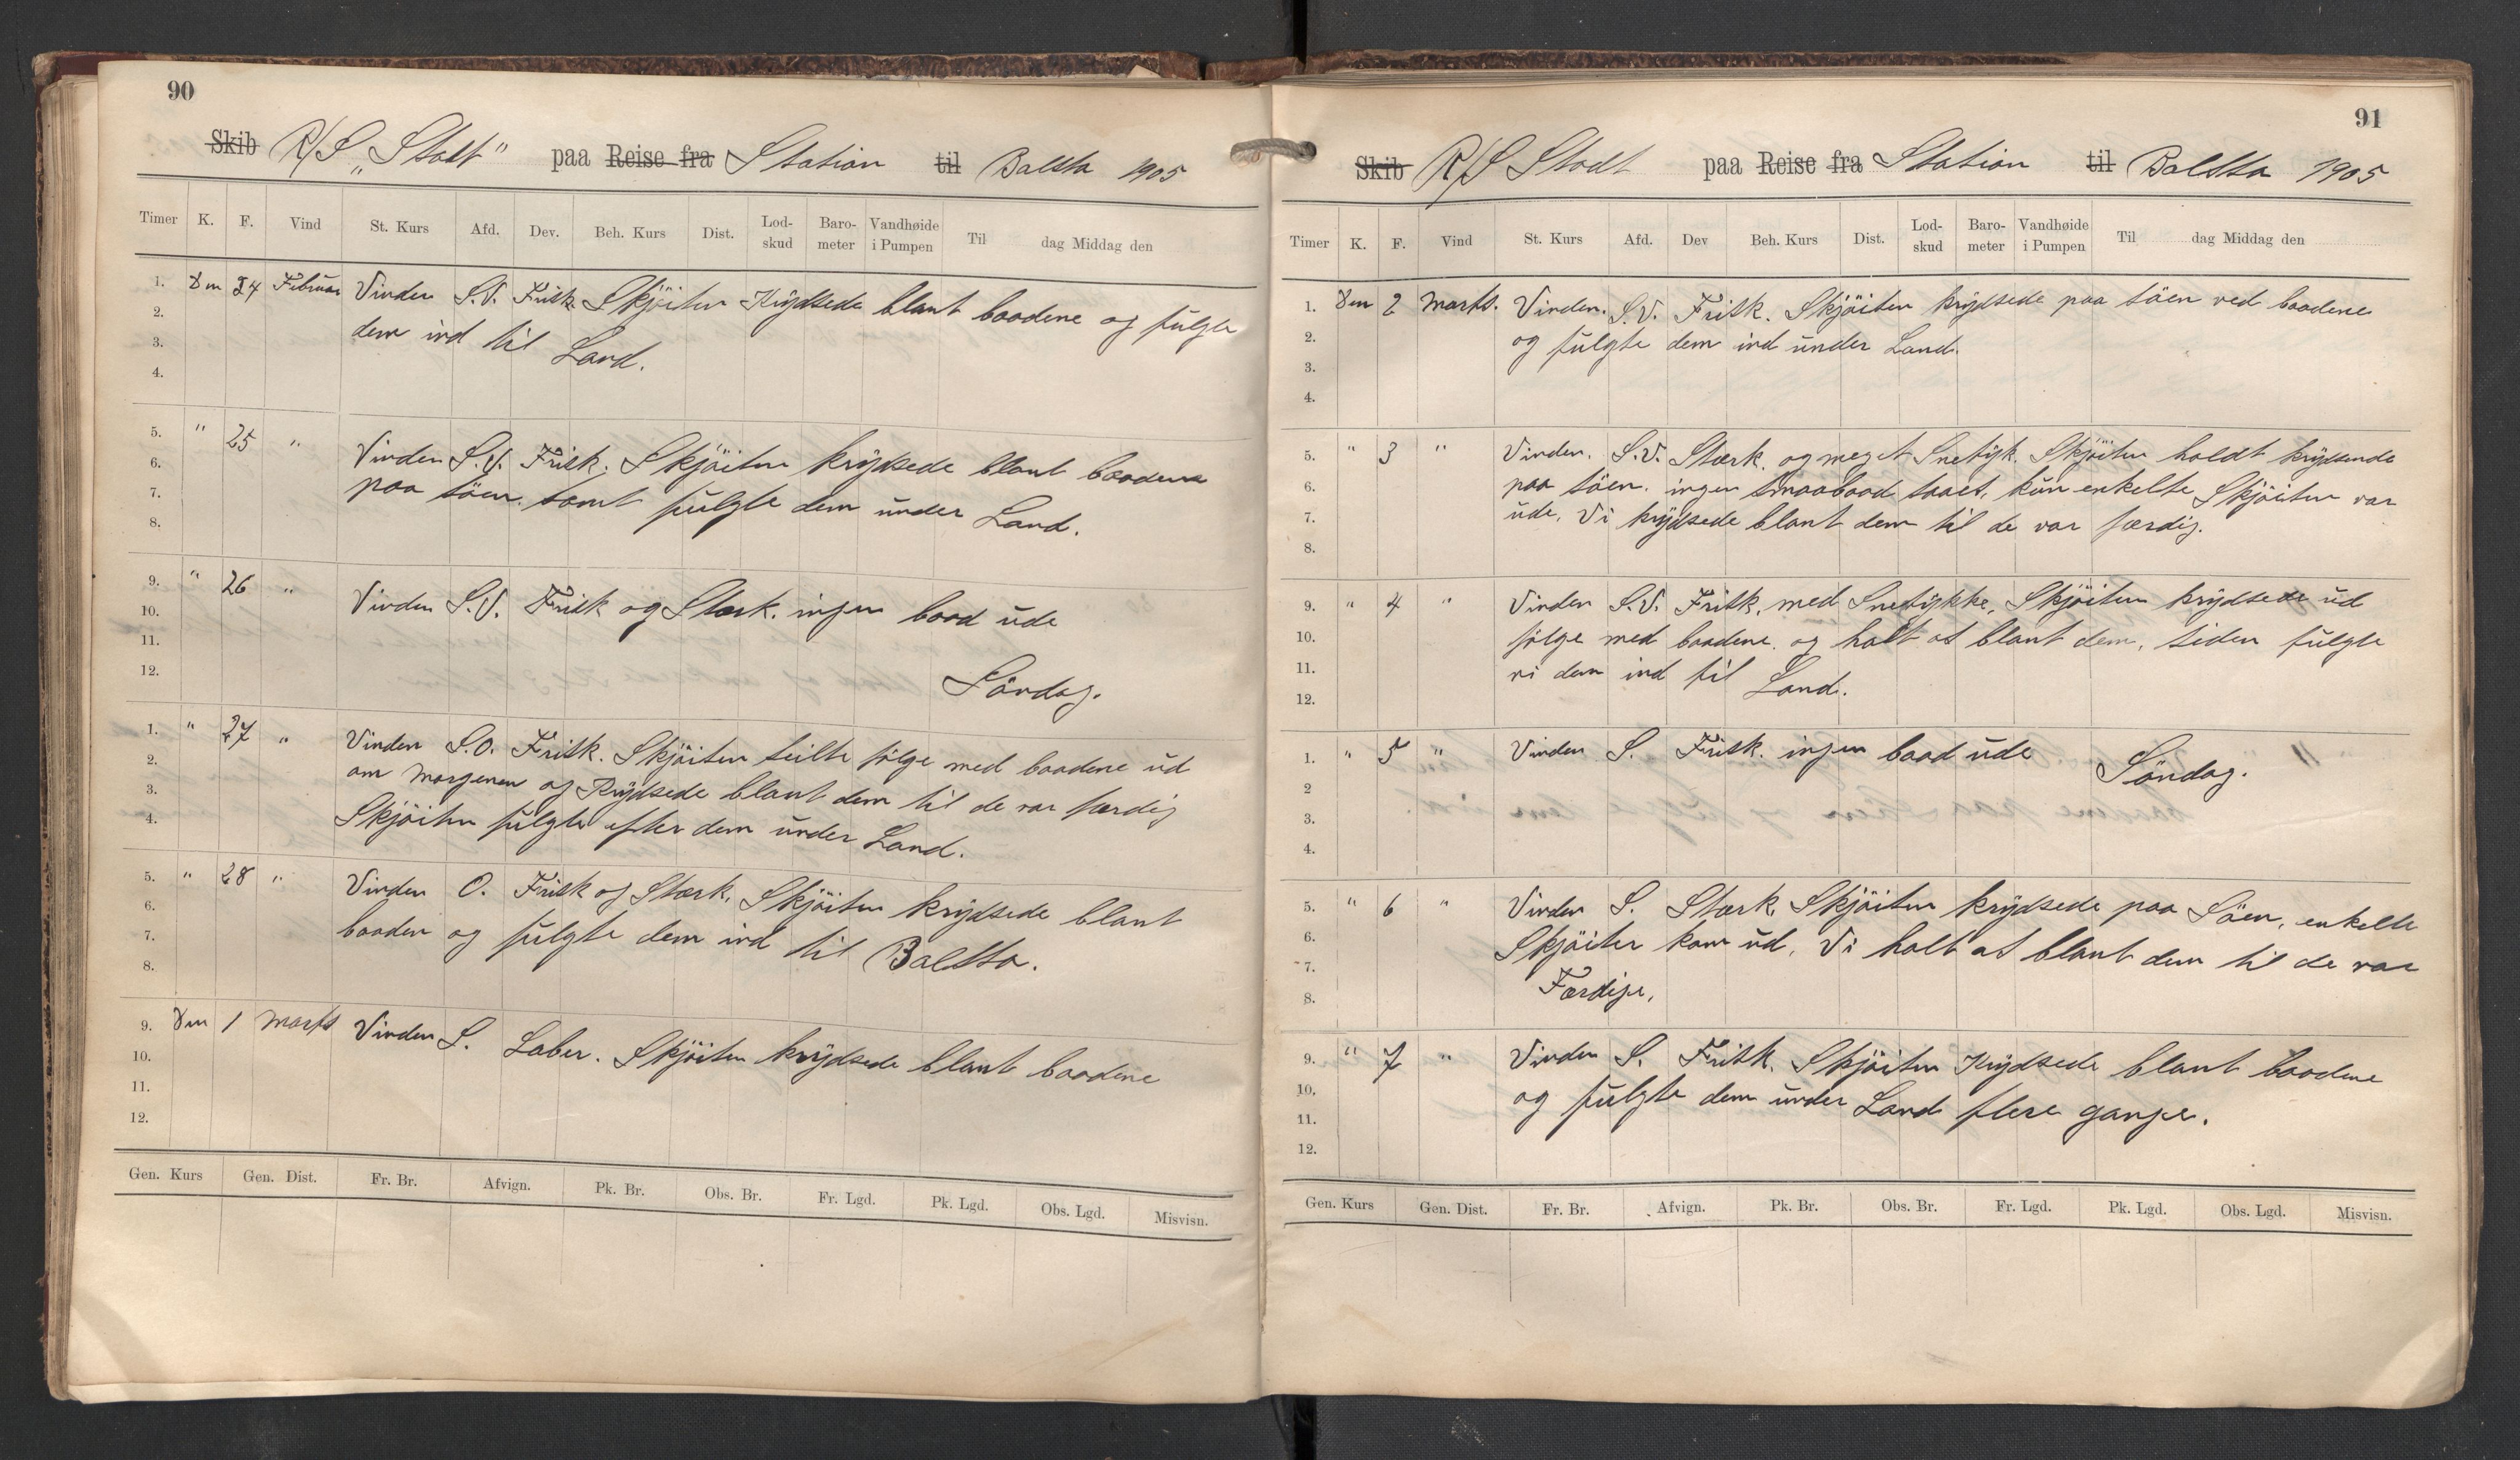 90
Skib R/S „Stadt" paa Reise fra Station til Balsta 1905
Timer K. F. Vind St. Kurs Afd. Dev. Beh. Kurs Dist. Lod-skud Baro-meter Vandhøide i Pumpen Til dag Middag den
1. Den 24 Februar Vinden S.V. Frisk Skjöiten Krÿdsede blant baadene og fulgte
2. dem ind til Land.
3.
4.
5. " 25 " Vinden S.V. Frisk. Skjöiten krÿdsede blant baadene
6. paa söen samt fulgte dem under Land.
7.
8.
9. " 26 " Vinden S.V. Frisk og Stærk. ingen baad ude
10.
11. Söndag.
12.
1. " 27 " Vinden S.O. Frisk. Skjöiten seilte fölge med baadene ud
2. om Morgenen og Krÿdsede blant dem til de var færdig
3. Skjöiten fulgte efter dem under Land.
4.
5. " 28 " Vinden O. Frisk og Stærk, Skjöiten krÿdsede blant
6. baaden og fulgte dem ind til Balsta.
7.
8.
9. Den 1 Marts Vinden S. Laber. Skjöiten krÿdsede blant baadene
10.
11.
12.
Gen. Kurs Gen. Dist. Fr. Br. Afvign. Pk. Br. Obs. Br. Fr. Lgd. Pk. Lgd. Obs. Lgd. Misvisn.
91
Skib R/S Stadt paa Reise fra Station til Balsta 1905
Timer K. F. Vind St. Kurs Afd. Dev Beh. Kurs Dist. Lod-skud Baro-meter Vandhøide i Pumpen Til dag Middag den
1. Den 2 Marts. Vinden. S.V. Frisk. Skjöiten krÿdsede paa söen ved baadene
2. og fulgte dem ind under Land.
3.
4.
5. " 3 " Vinden. S.V. Stærk. og meget Snetÿk. Skjöiten holdt krÿdsende
6. paa söen. ingen smaabaad saaes, kun enkelte Skjöiter var
7. ude, Vi krÿdsede blant dem til de var færdig.
8.
9. " 4 " Vinden S.V. Frisk, med Snetÿkke, Skjöiten krÿdsede ud
10. fölge med baadene. og halt os blant dem, siden fulgte
11. vi dem ind til Land.
12.
1. " 5 " Vinden S. Frisk. ingen baad ude Söndag.
2
3.
4.
5. " 6 " Vinden S. Stærk, Skjöiten krÿdsede paa Söen, enkelte
6. Skjöiter kom ud, Vi halt os blant dem til de var
7. Færdige,
8.
9. " 7 " Vinden S. Frisk. Skjöiten Krÿdsede blant baadene
10. og fulgte dem under Land flere gange.
11.
12.
Gen. Kurs Gen. Dist. Fr. Br. Afvign. Pk. Br. Obs. Br. Fr. Lgd. Pk. Lgd. Obs. Lgd. Misvisn.